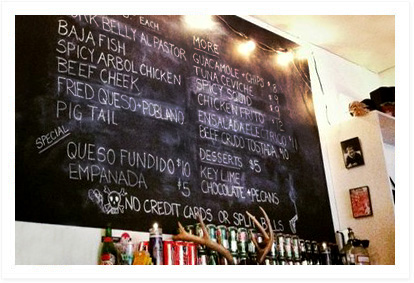 EACH
PORK BELLY AL PASTOR
BAJA FISH
SPICY ARBOL CHICKEN
BEEF CHEEK
FRIED QUESO + POBLANO
PIG TAIL
SPECIAL
QUESO FUNDIDO $10
EMPANADA $5
MORE
GUACAMOLE + CHIPS $8
TUNA CEVICHE $9
SPICY
CHICKEN FRITO
ENSALADA ELECTRICO 11
BEEF CRUDO TOSTADA 10
DESSERTS $5
KEY LIME
CHOCOLATE + PECANS
NO CREDIT CARDS OR